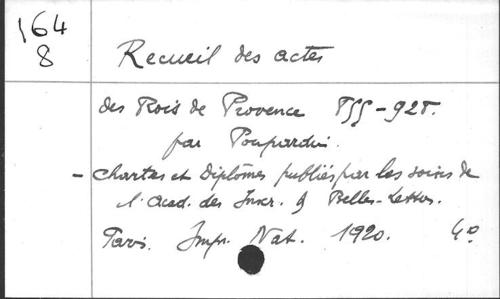 164
8
Recueil des actes
des Rois de Provence 855-928.
par Poupardin.
- Chartes et Diplômes publiés par les soins de
l'Acad. des Inscr. & Belles-Lettres.
Paris. Impr. Nat. 1920. 4º